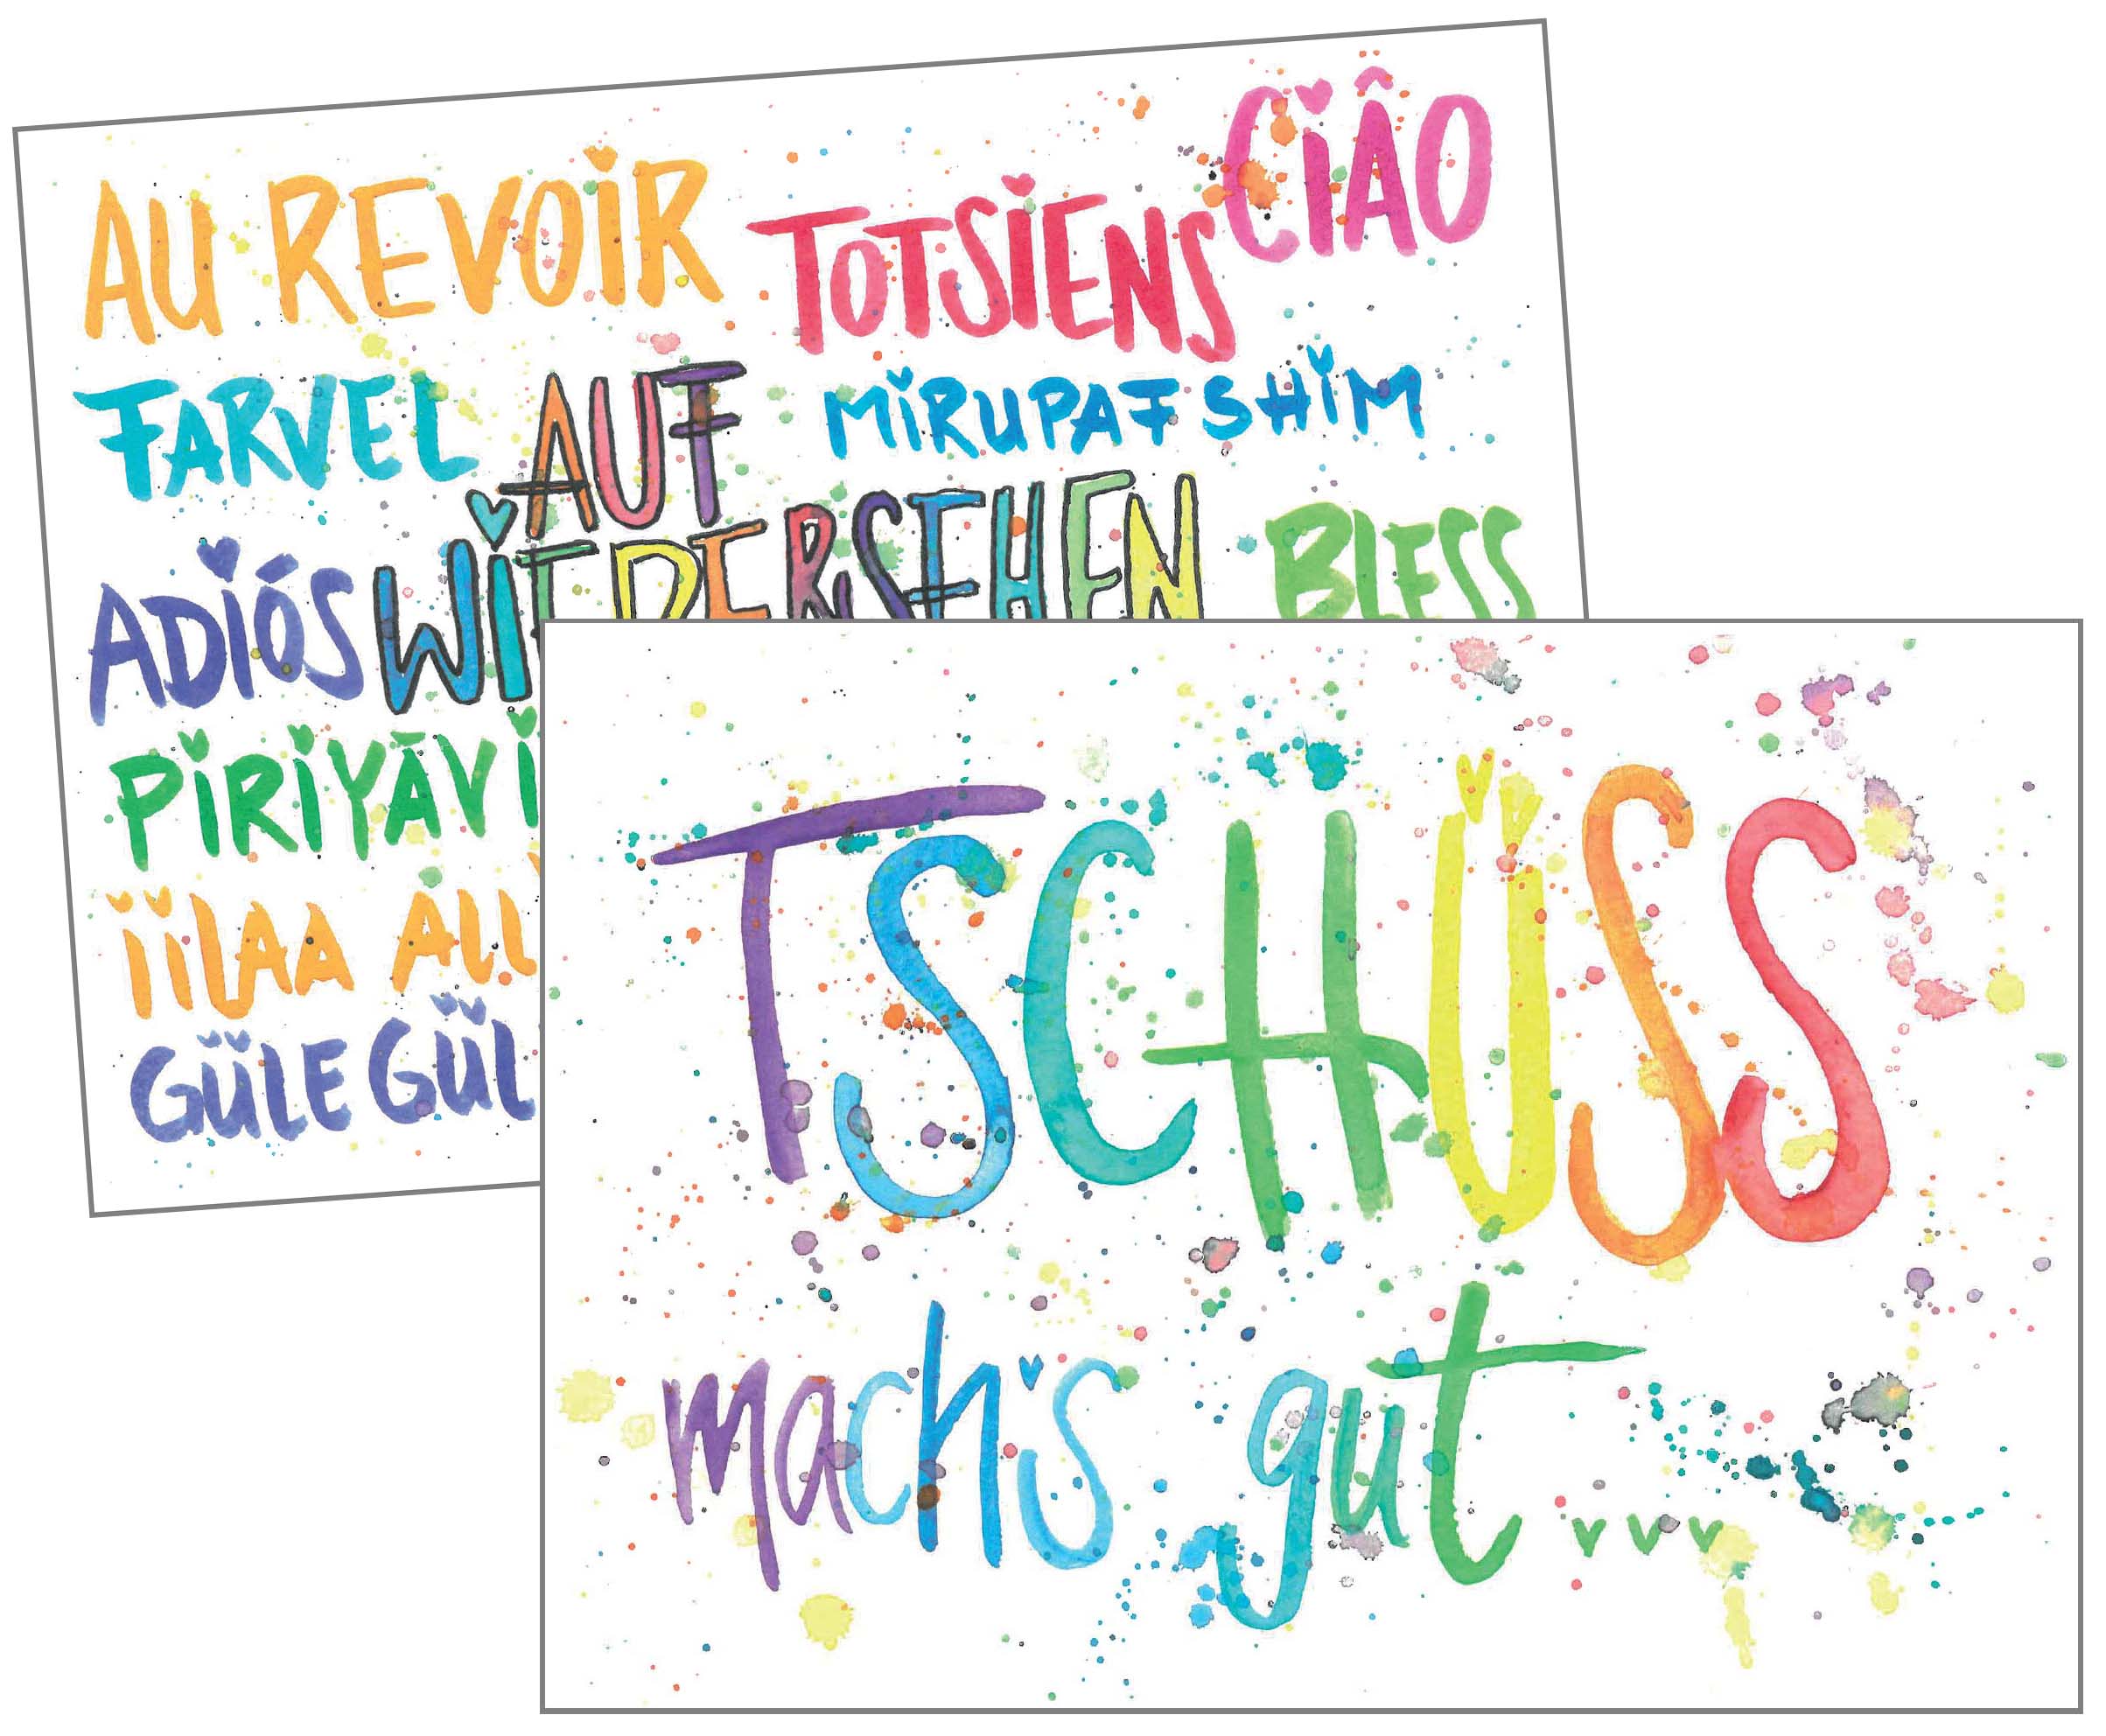 AU REVOIR TOTSIENS CIÂO
FARVEL AUF MIRUPAFSHIM
ADIÓS WIEDERSEHEN BLESS
PIRIYĀVI
IILAA ALL
GÜLE GÜL
TSCHÜSS
mach's gut